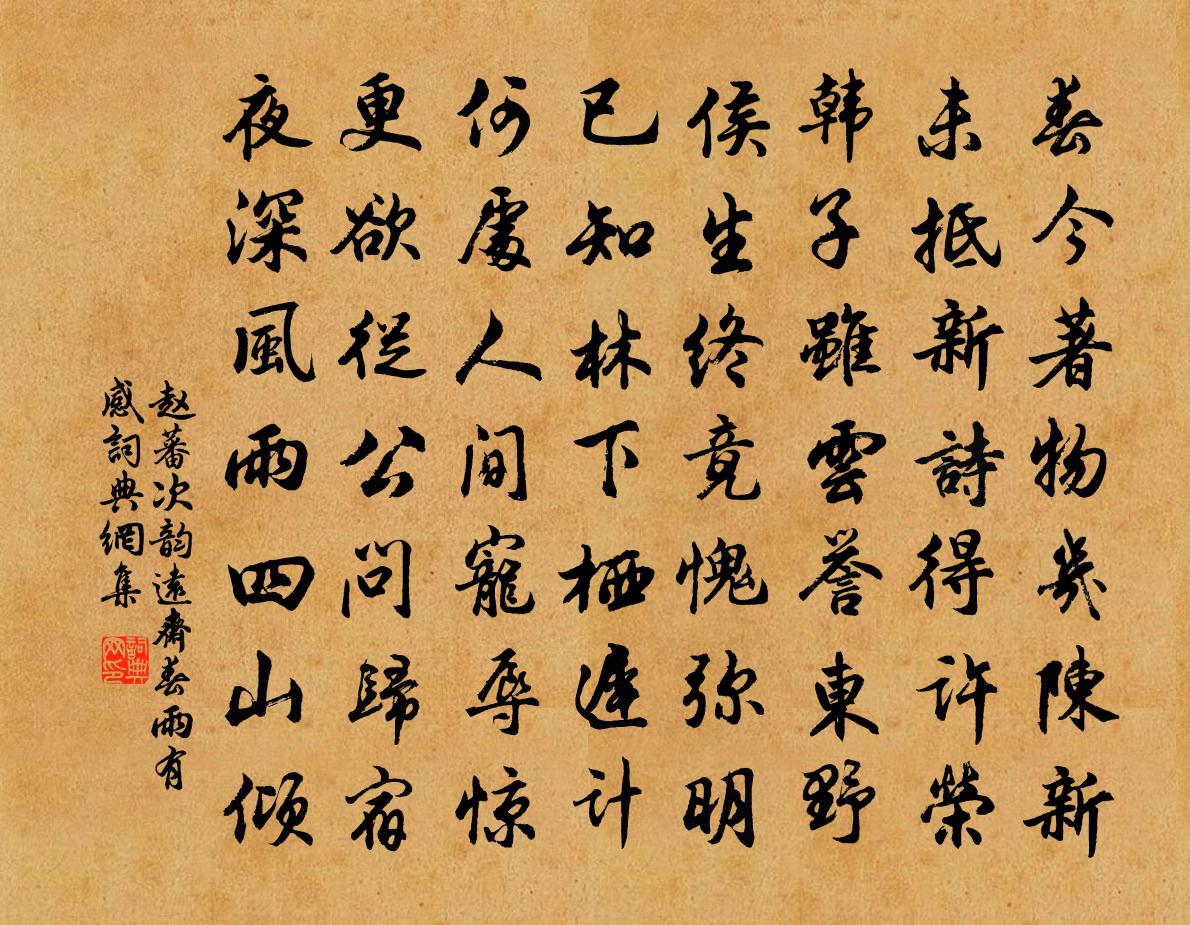 春今著物幾陳新
未抵新詩得許榮
韩子雖雲譽東野
侯生终竟愧弥明
已知林下栖遲计
何處人间寵辱惊
更欲從公问歸宿
夜深風雨四山傾
赵蕃次韵遠齋春雨有
感詞典網集
詞典网印